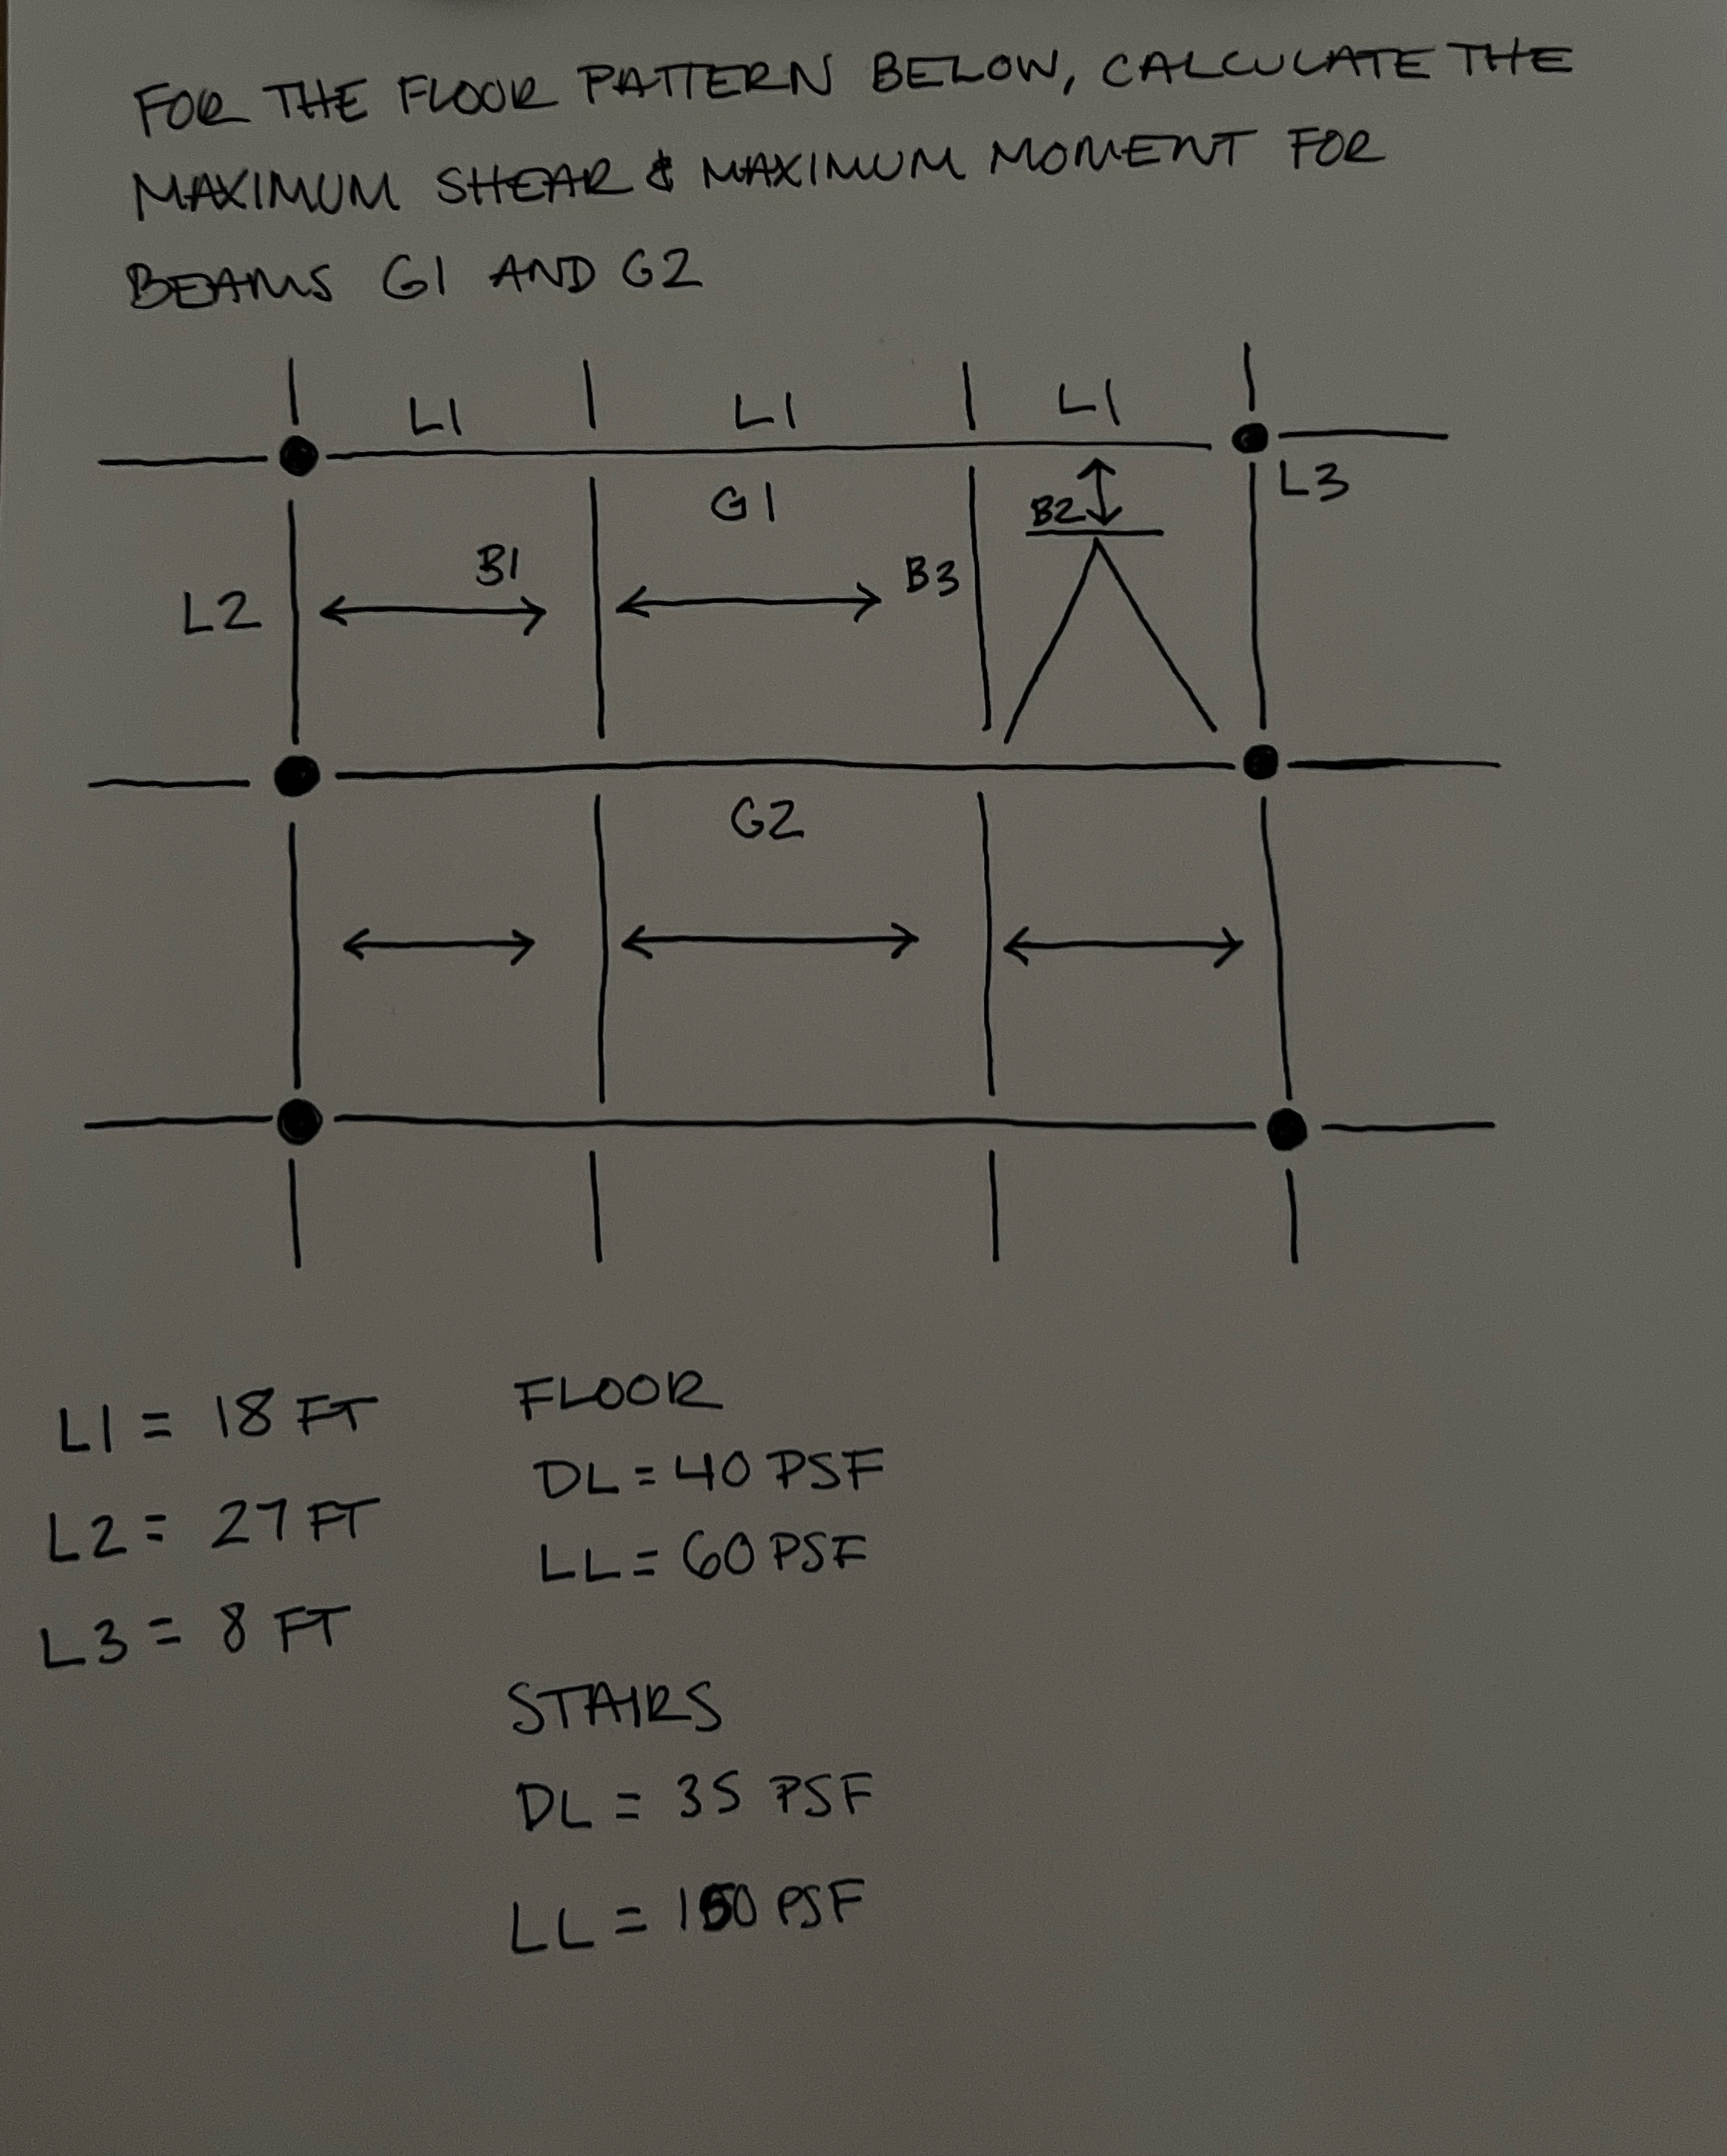 FOR THE FLOOR PATTERN BELOW, CALCULATE THE
MAXIMUM SHEAR & MAXIMUM MOMENT FOR
BEAMS G1 AND G2
L1 L1 L1
L3
G1
B2
B1
B3
L2
G2
L1 = 18 FT
L2 = 27 FT
L3 = 8 FT
FLOOR
DL = 40 PSF
LL = 60 PSF
STAIRS
DL = 35 PSF
LL = PSF